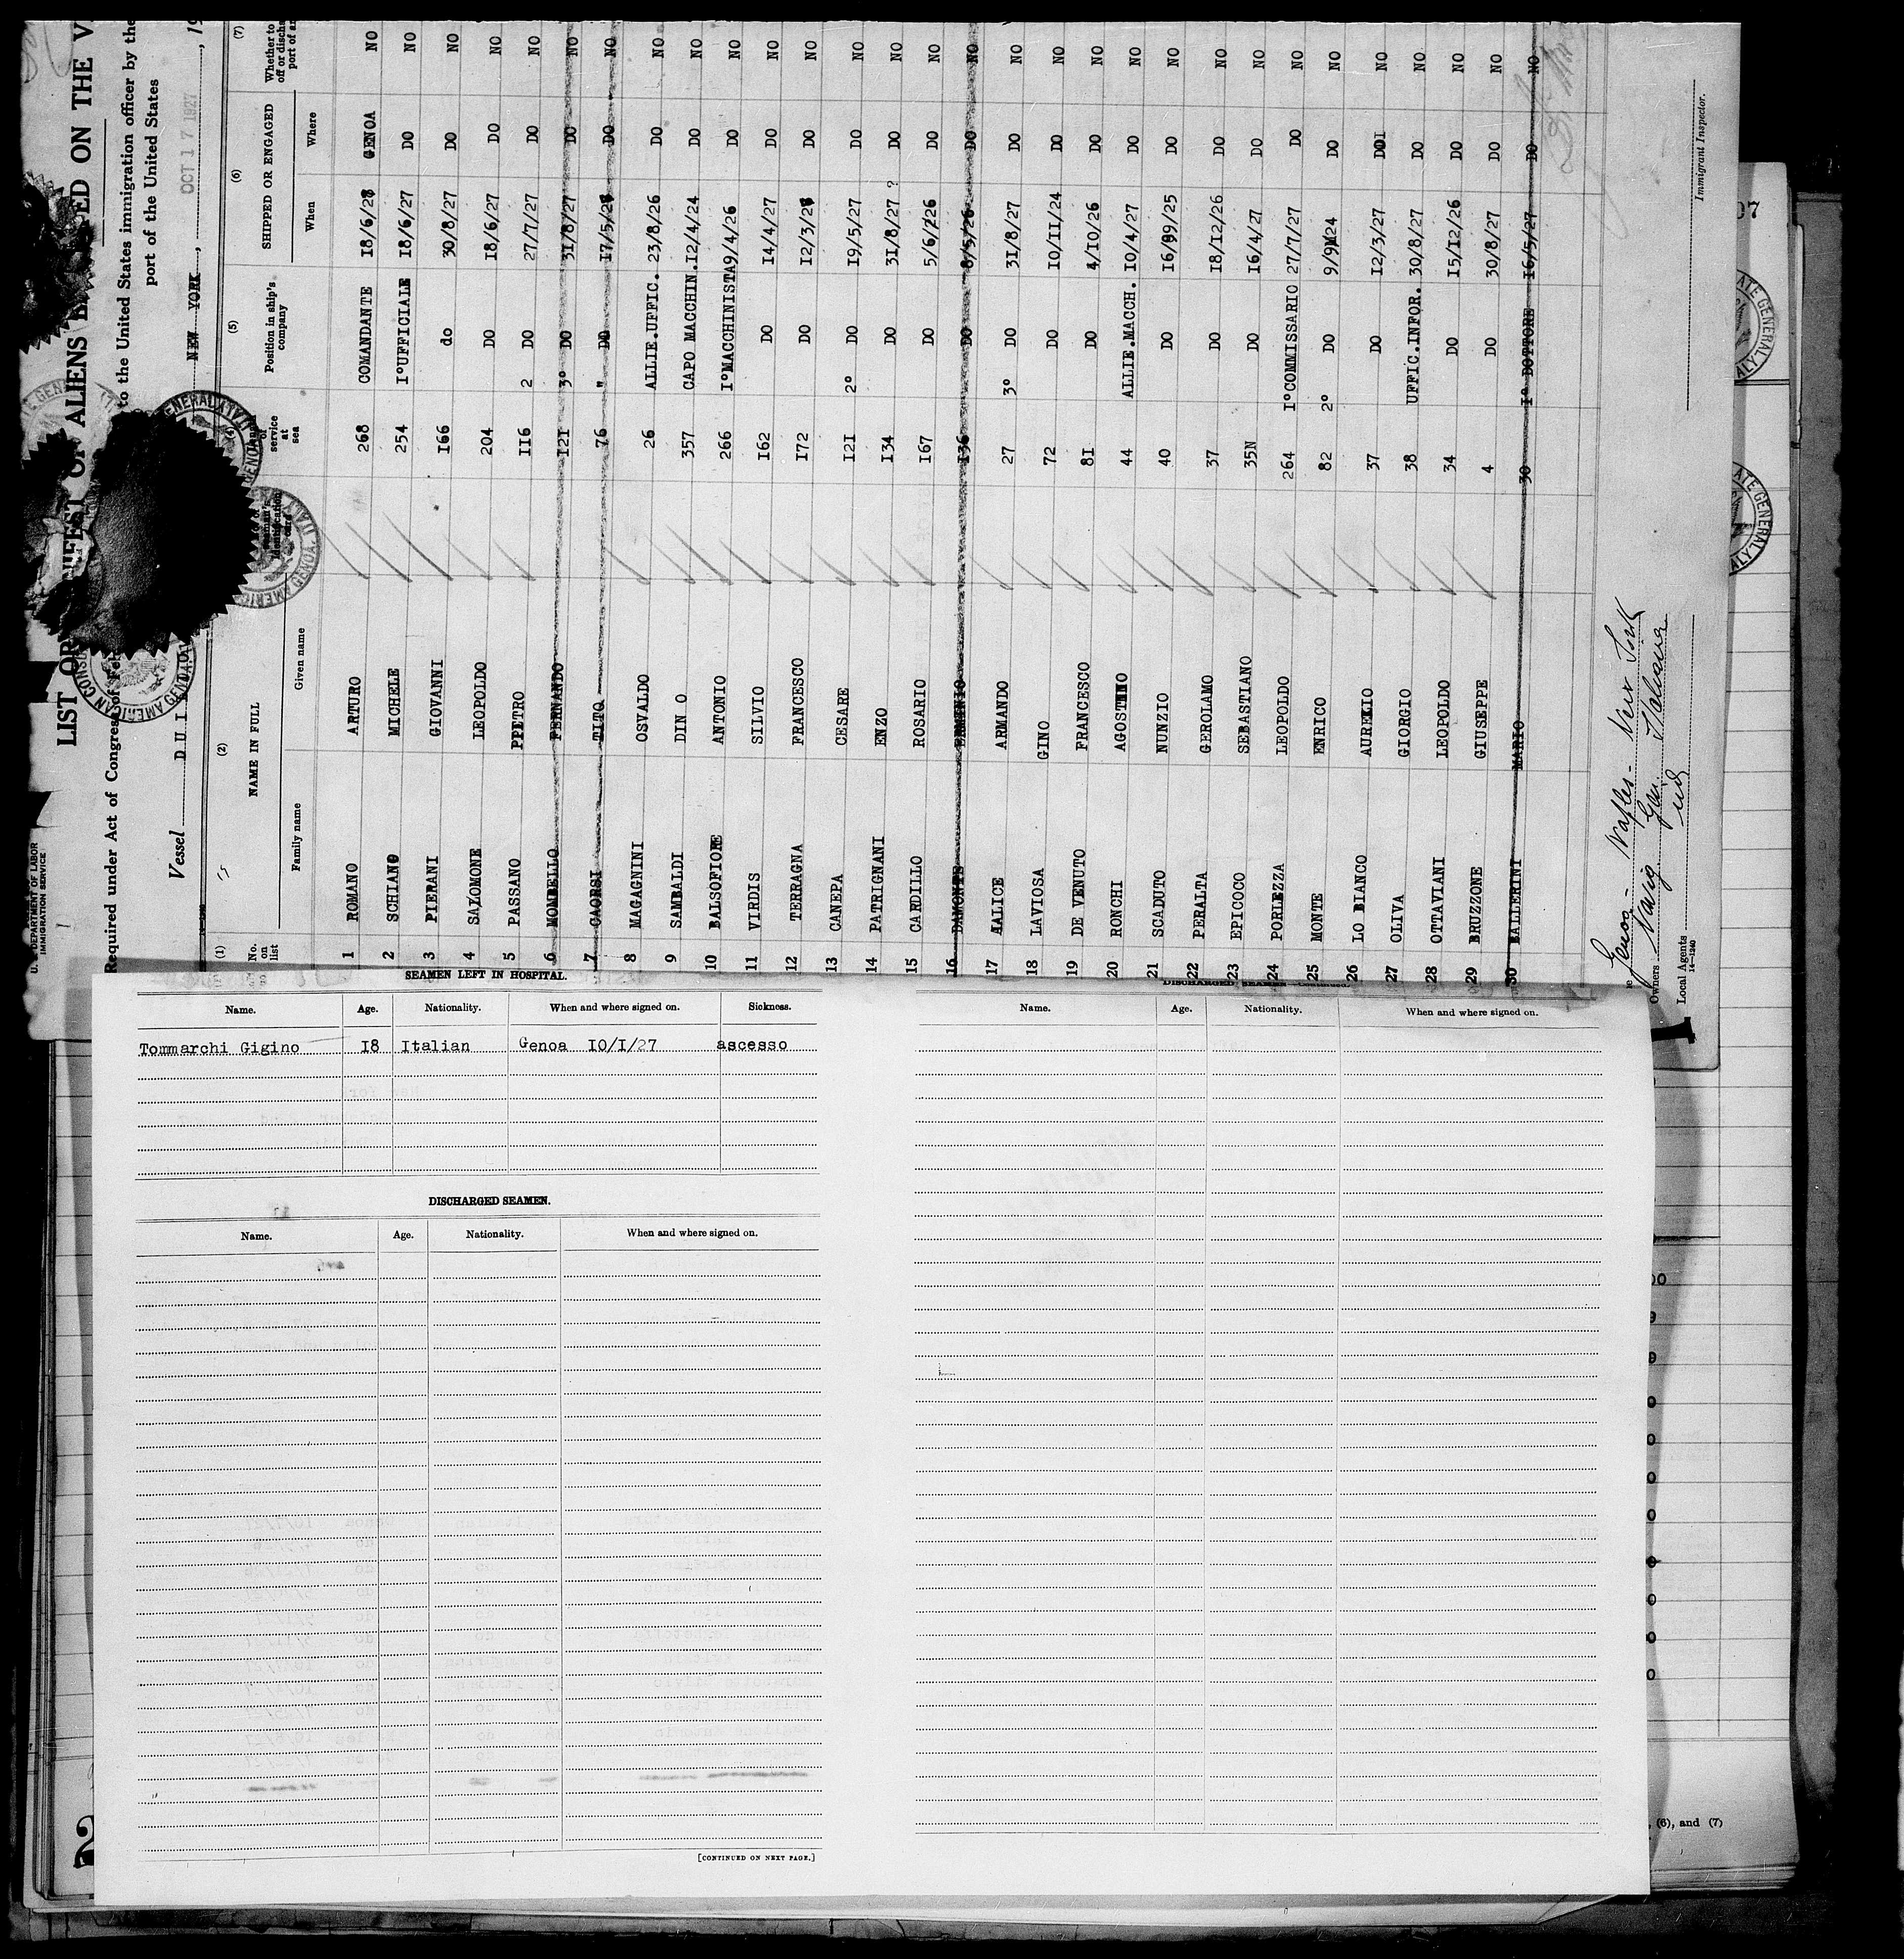 U. S. DEPARTMENT OF LABOR
IMMIGRATION SERVICE
LIST OR MANIFEST OF ALIENS EMPLOYED ON THE V
Required under Act of Congress of to the United States immigration officer by the
port of the United States
Vessel DUILIO NEW YORK, OCT 17 1927, 19
(1) (2) (4) (5) (6) (7)
No. on list NAME IN FULL service at sea Position in ship's company SHIPPED OR ENGAGED Whether to
Family name Given name When Where
1 ROMANO ARTURO 268 COMANDANTE 18/6/28 GENOA NO
2 SCHIANO MICHELE 254 I°UFFICIALE 18/6/27 DO NO
3 PIERANI GIOVANNI 166 do 30/8/27 DO NO
4 SALOMONE LEOPOLDO 204 DO 18/6/27 DO NO
5 PASSANO PIETRO 116 2 DO 27/7/27 DO NO
6 MOMBELLO FERNANDO 121 3° DO 31/8/27 DO NO
7 CAORSI TITO 76 " DO 17/5/28 DO NO
8 MAGAGNINI OSVALDO 26 ALLIE.UFFIC. 23/8/26 DO NO
9 SAMBALDI DIN O 357 CAPO MACCHIN. 12/4/24 DO NO
10 BALSOFIORE ANTONIO 266 I°MACCHINISTA 9/4/26 DO NO
11 VIRDIS SILVIO 162 DO 14/4/27 DO NO
12 TERRAGNA FRANCESCO 172 DO 12/3/27 DO NO
13 CANEPA CESARE 121 2° DO 19/5/27 DO NO
14 PATRIGNANI ENZO 134 DO 31/8/27 ? DO NO
15 CARDILLO ROSARIO 167 DO 5/6/26 DO NO
16 DAMONTE ERMINIO 136 DO 8/5/26 DO NO
17 AALICE ARMANDO 27 3° DO 31/8/27 DO NO
18 LAVIOSA GINO 72 DO 10/11/24 DO NO
19 DE VENUTO FRANCESCO 81 DO 4/10/26 DO NO
20 RONCHI AGOSTINO 44 ALLIE.MACCH. 10/4/27 DO NO
21 SCADUTO NUNZIO 40 DO 16/99/25 DO NO
22 PERALTA GEROLAMO 37 DO 18/12/26 DO NO
23 EPICOCO SEBASTIANO 35N DO 16/4/27 DO NO
24 PORLEZZA LEOPOLDO 264 I°COMMISSARIO 27/7/27 DO NO
25 MONTE ENRICO 82 2° DO 9/9/24 DO NO
26 LO BIANCO AURELIO 37 DO 12/3/27 DOI NO
27 OLIVA GIORGIO 38 UFFIC.INFOR. 30/8/27 DO NO
28 OTTAVIANI LEOPOLDO 34 DO 15/12/26 DO NO
29 BRUZZONE GIUSEPPE 4 DO 30/8/27 DO NO
30 BALLERINI MARIO 30 I° DOTTORE 16/5/27 DO NO
Genoa - Naples - New York
Owners Navig. Gen. Italiana
Local Agents
14-1240
Immigrant Inspector.
SEAMEN LEFT IN HOSPITAL.
Name. Age. Nationality. When and where signed on. Sickness.
Tommarchi Gigino 18 Italian Genoa 10/1/27 ascesso
DISCHARGED SEAMEN.
Name. Age. Nationality. When and where signed on.
[CONTINUED ON NEXT PAGE.]
DISCHARGED SEAMEN—Continued.
Name. Age. Nationality. When and where signed on.
, (6), and (7)